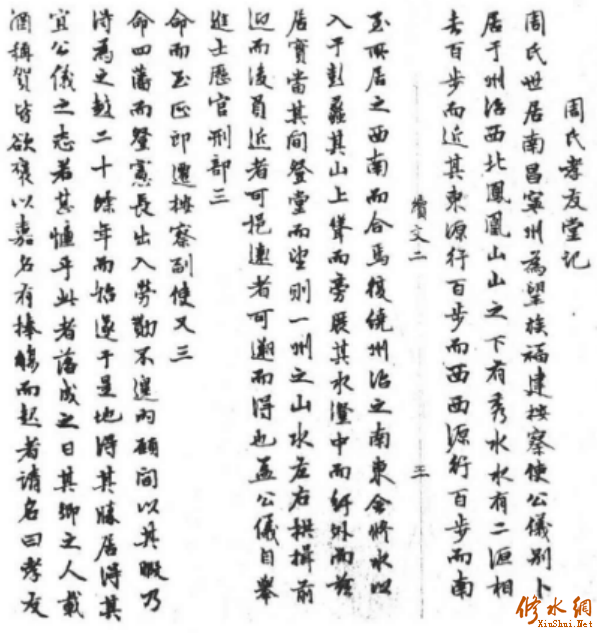 周氏孝友堂記
周氏世居南昌寧州為望族福建按察使公儀別卜
居于州治西北鳳凰山山之下有秀水水有二源相
去百步而近其東源行百步而西西源行百步而南
續文二 三
至所居之西南而合焉復繞州治之南東會修水以
入于彭蠡其山上聳而旁展其水瀅中而紆外而兹
居實當其間登堂而望則一州之山水左右拱揖前
迎而後負近者可挹遠者可邀而得也蓋公儀自舉
進士歷官刑部三
命而至正郎遷按察副使又三
命四藩而登憲長出入勞勩不遑內顧間以其暇乃
得為之越二十餘年而始遂于是地得其勝居得其
宜公儀之志若甚愜乎此者落成之日其鄉之人載
酒稱賀皆欲褒以嘉名有捧觴而起者請名曰孝友
修水網
XiuShui.Net